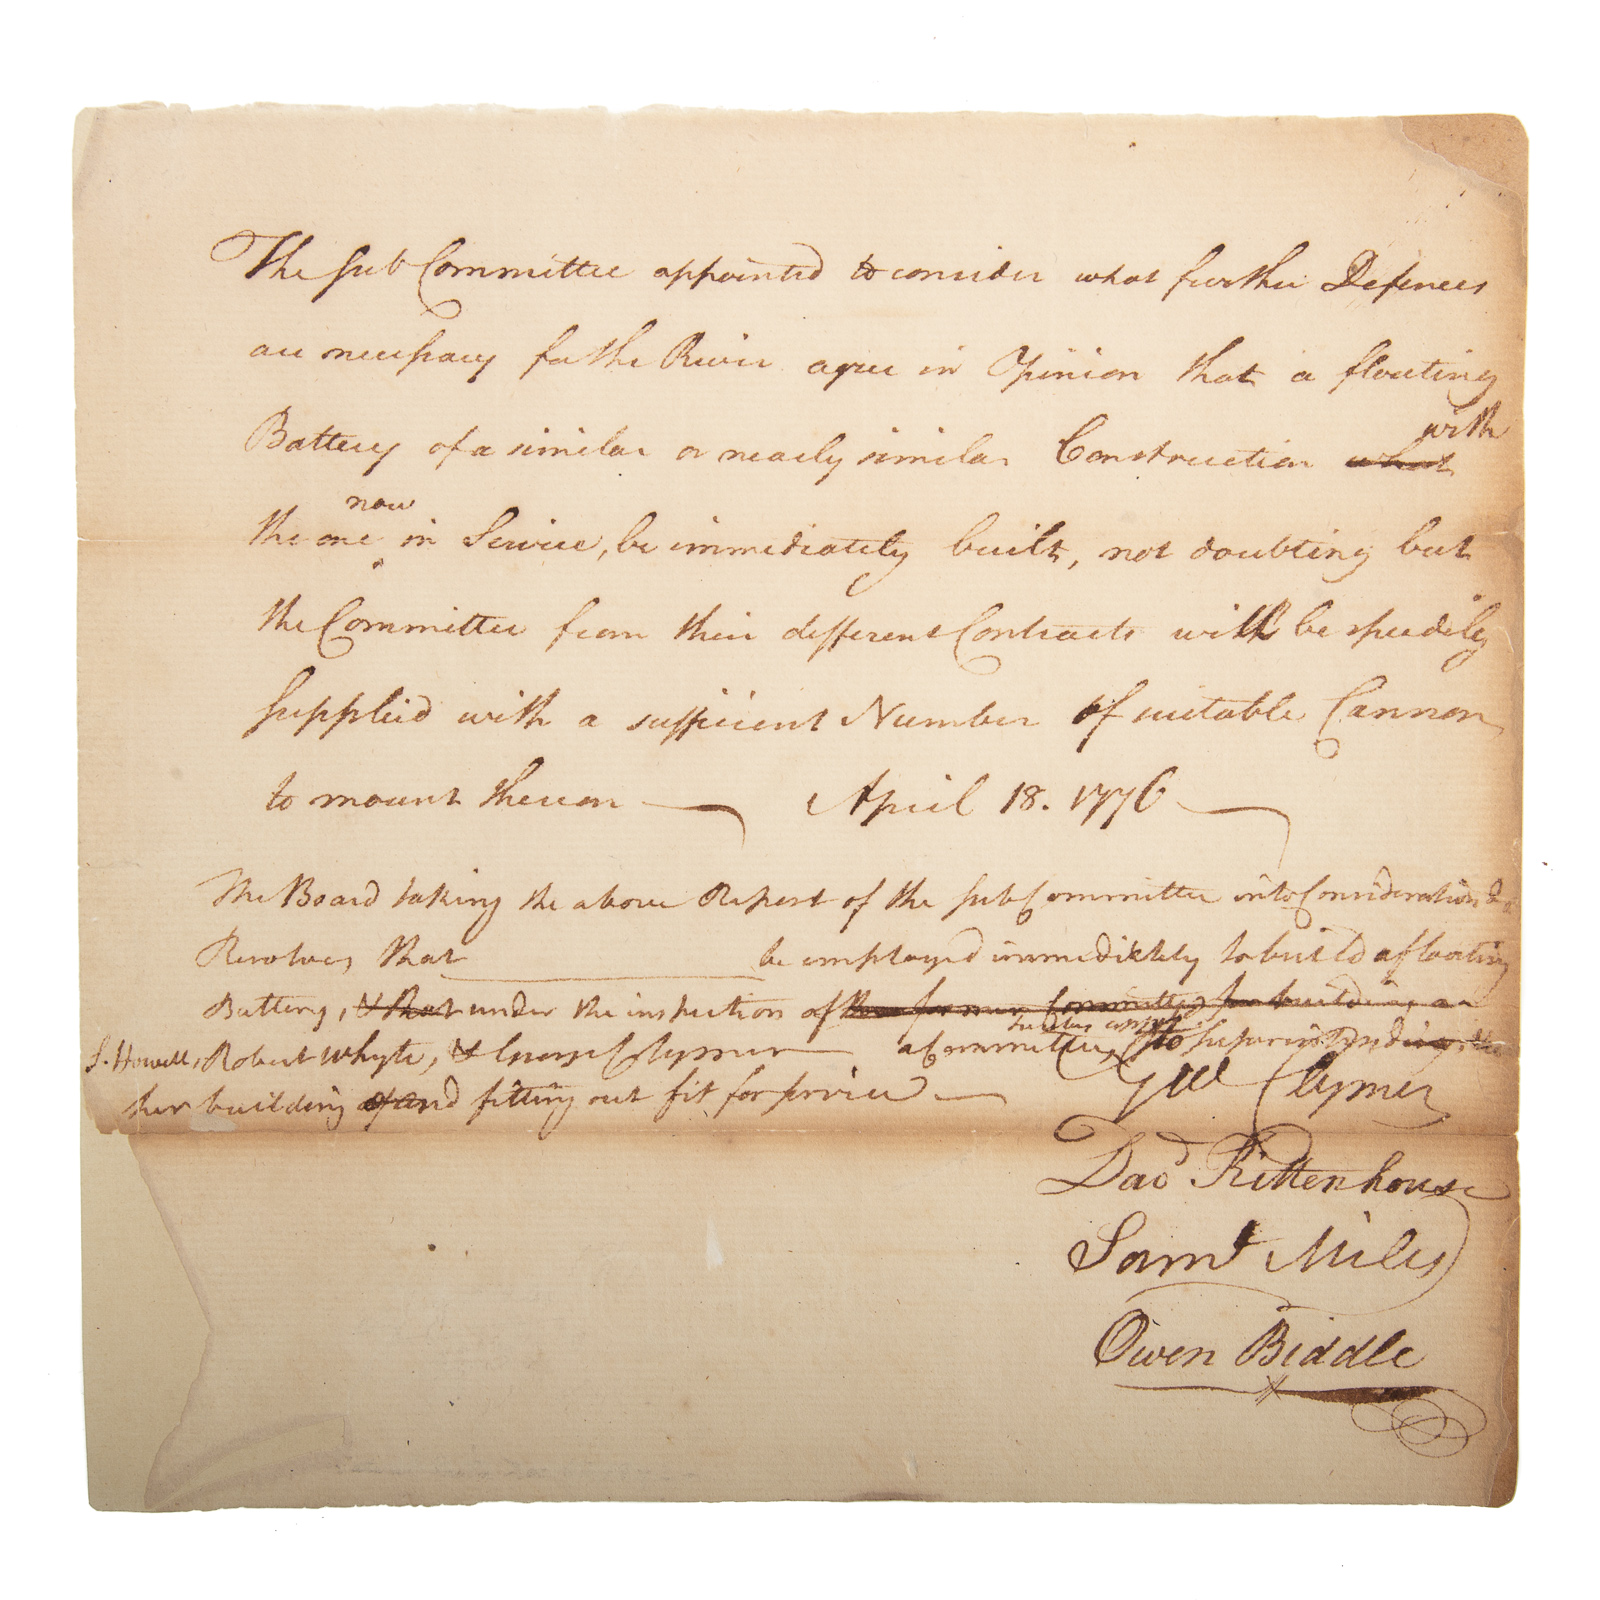 The sub Committee appointed to consider what further Defences
are necessary for the River agree in Opinion that a floating
with
Battery of a similar or nearly similar Construction what
now
the one in Service, be immediately built, not doubting but
the Committee from their different Contracts will be speedily
supplied with a sufficient Number of suitable Cannon
to mount thereon April 18. 1776
The Board taking the above Report of the sub Committee into Consideration &
Resolves that be employed immediately to build a floating
Battery, & that under the inspection of former Committee for building a
S. Howell, Robert Whyte, & George Clymer a Committee, to superintend
her building of and fitting out fit for service
Geo Clymer
Davd Rittenhouse
Saml Miles
Owen Biddle